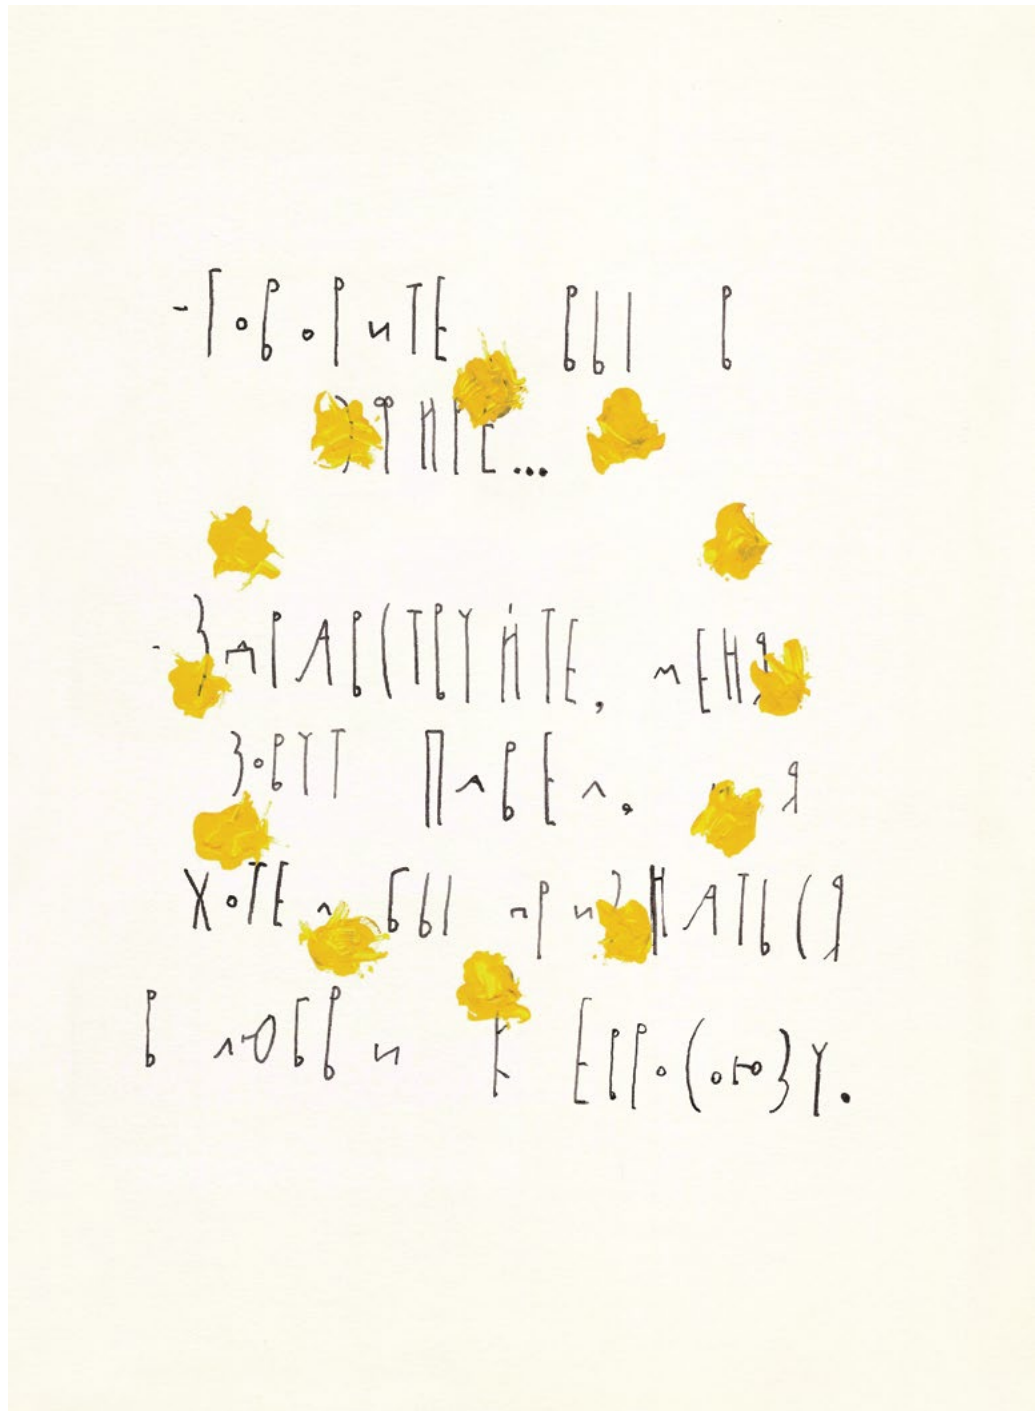 - Говорите вы в
эфире...
- Здравствуйте, меня
зовут Павел, и я
хотел бы признаться
в любви к Евросоюзу.